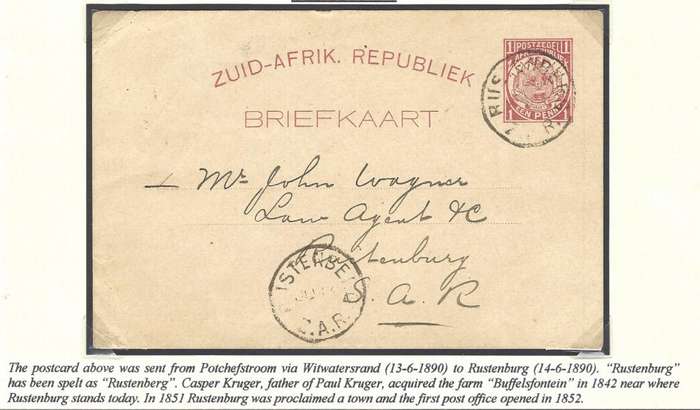 ZUID-AFRIK. REPUBLIEK
BRIEFKAART
1 POSTZEGEL 1
1 EEN PENNY 1
Mr John Wagner
Law Agent &c
Rustenburg
Z. A. R
Z.A.R.
The postcard above was sent from Potchefstroom via Witwatersrand (13-6-1890) to Rustenburg (14-6-1890). "Rustenburg"
has been spelt as "Rustenberg". Casper Kruger, father of Paul Kruger, acquired the farm "Buffelsfontein" in 1842 near where
Rustenburg stands today. In 1851 Rustenburg was proclaimed a town and the first post office opened in 1852.